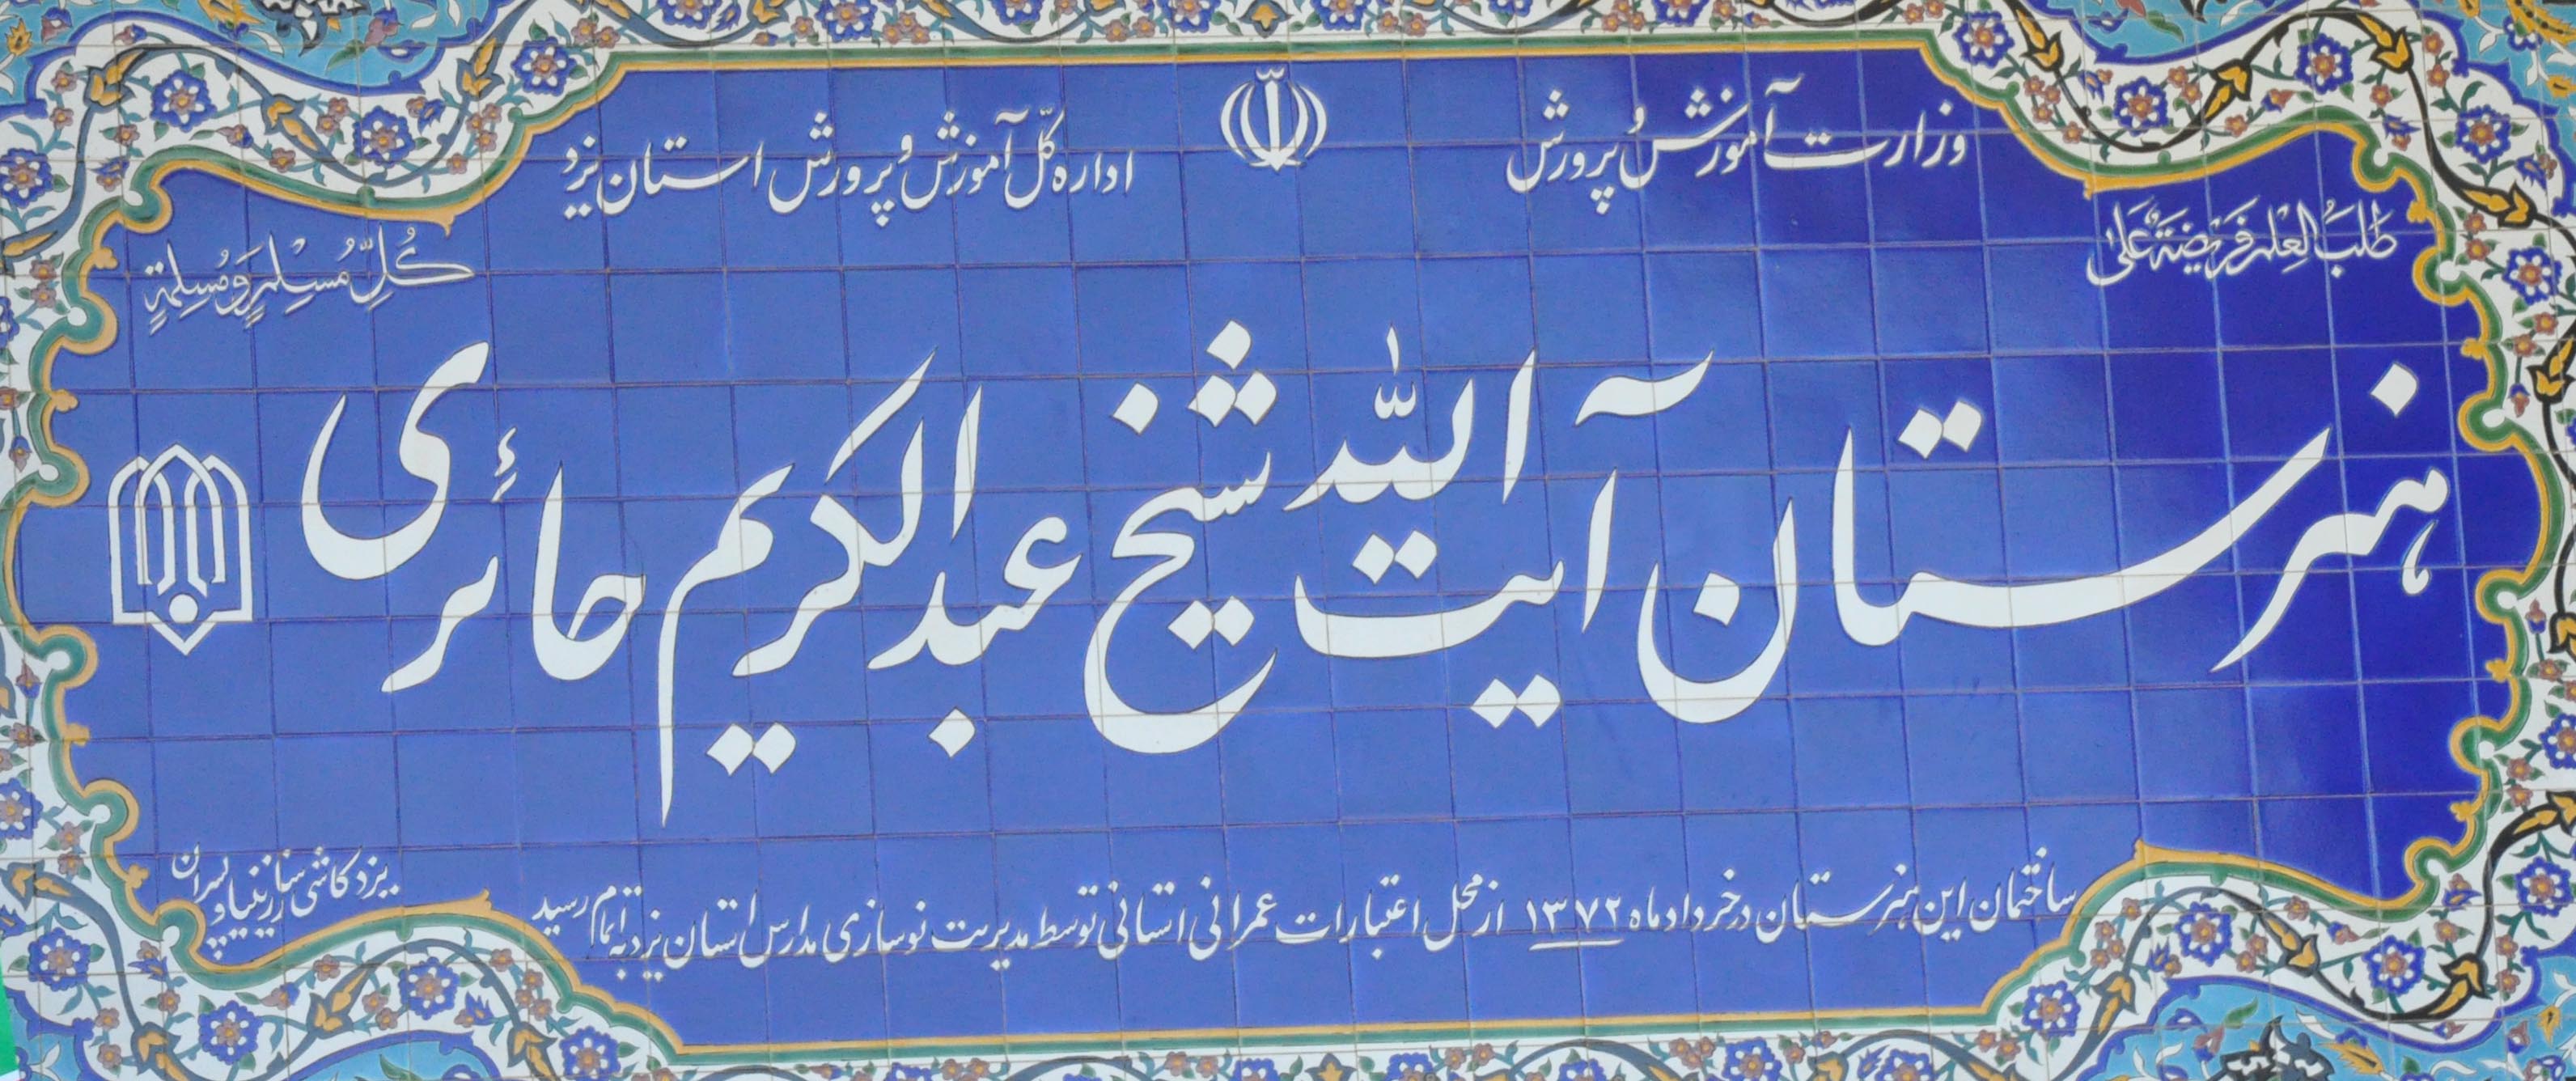 وزارت آموزش پرورش
اداره کلّ آموزش و پرورش استان یزد
طَلَبُ العِلْمِ فَریضَةٌ عَلیٰ
کُلِّ مُسْلِمٍ وَ مُسْلِمَةٍ
هنرستان آیت اللّٰه شیخ عبدالکریم حائری
ساختمان این هنرستان در خرداد ماه ۱۳۷۲ از محل اعتبارات عمرانی استانی توسط مدیریت نوسازی مدارس استان یزد به اتمام رسید
یزد کاشی سازی زرین نیا و پسران